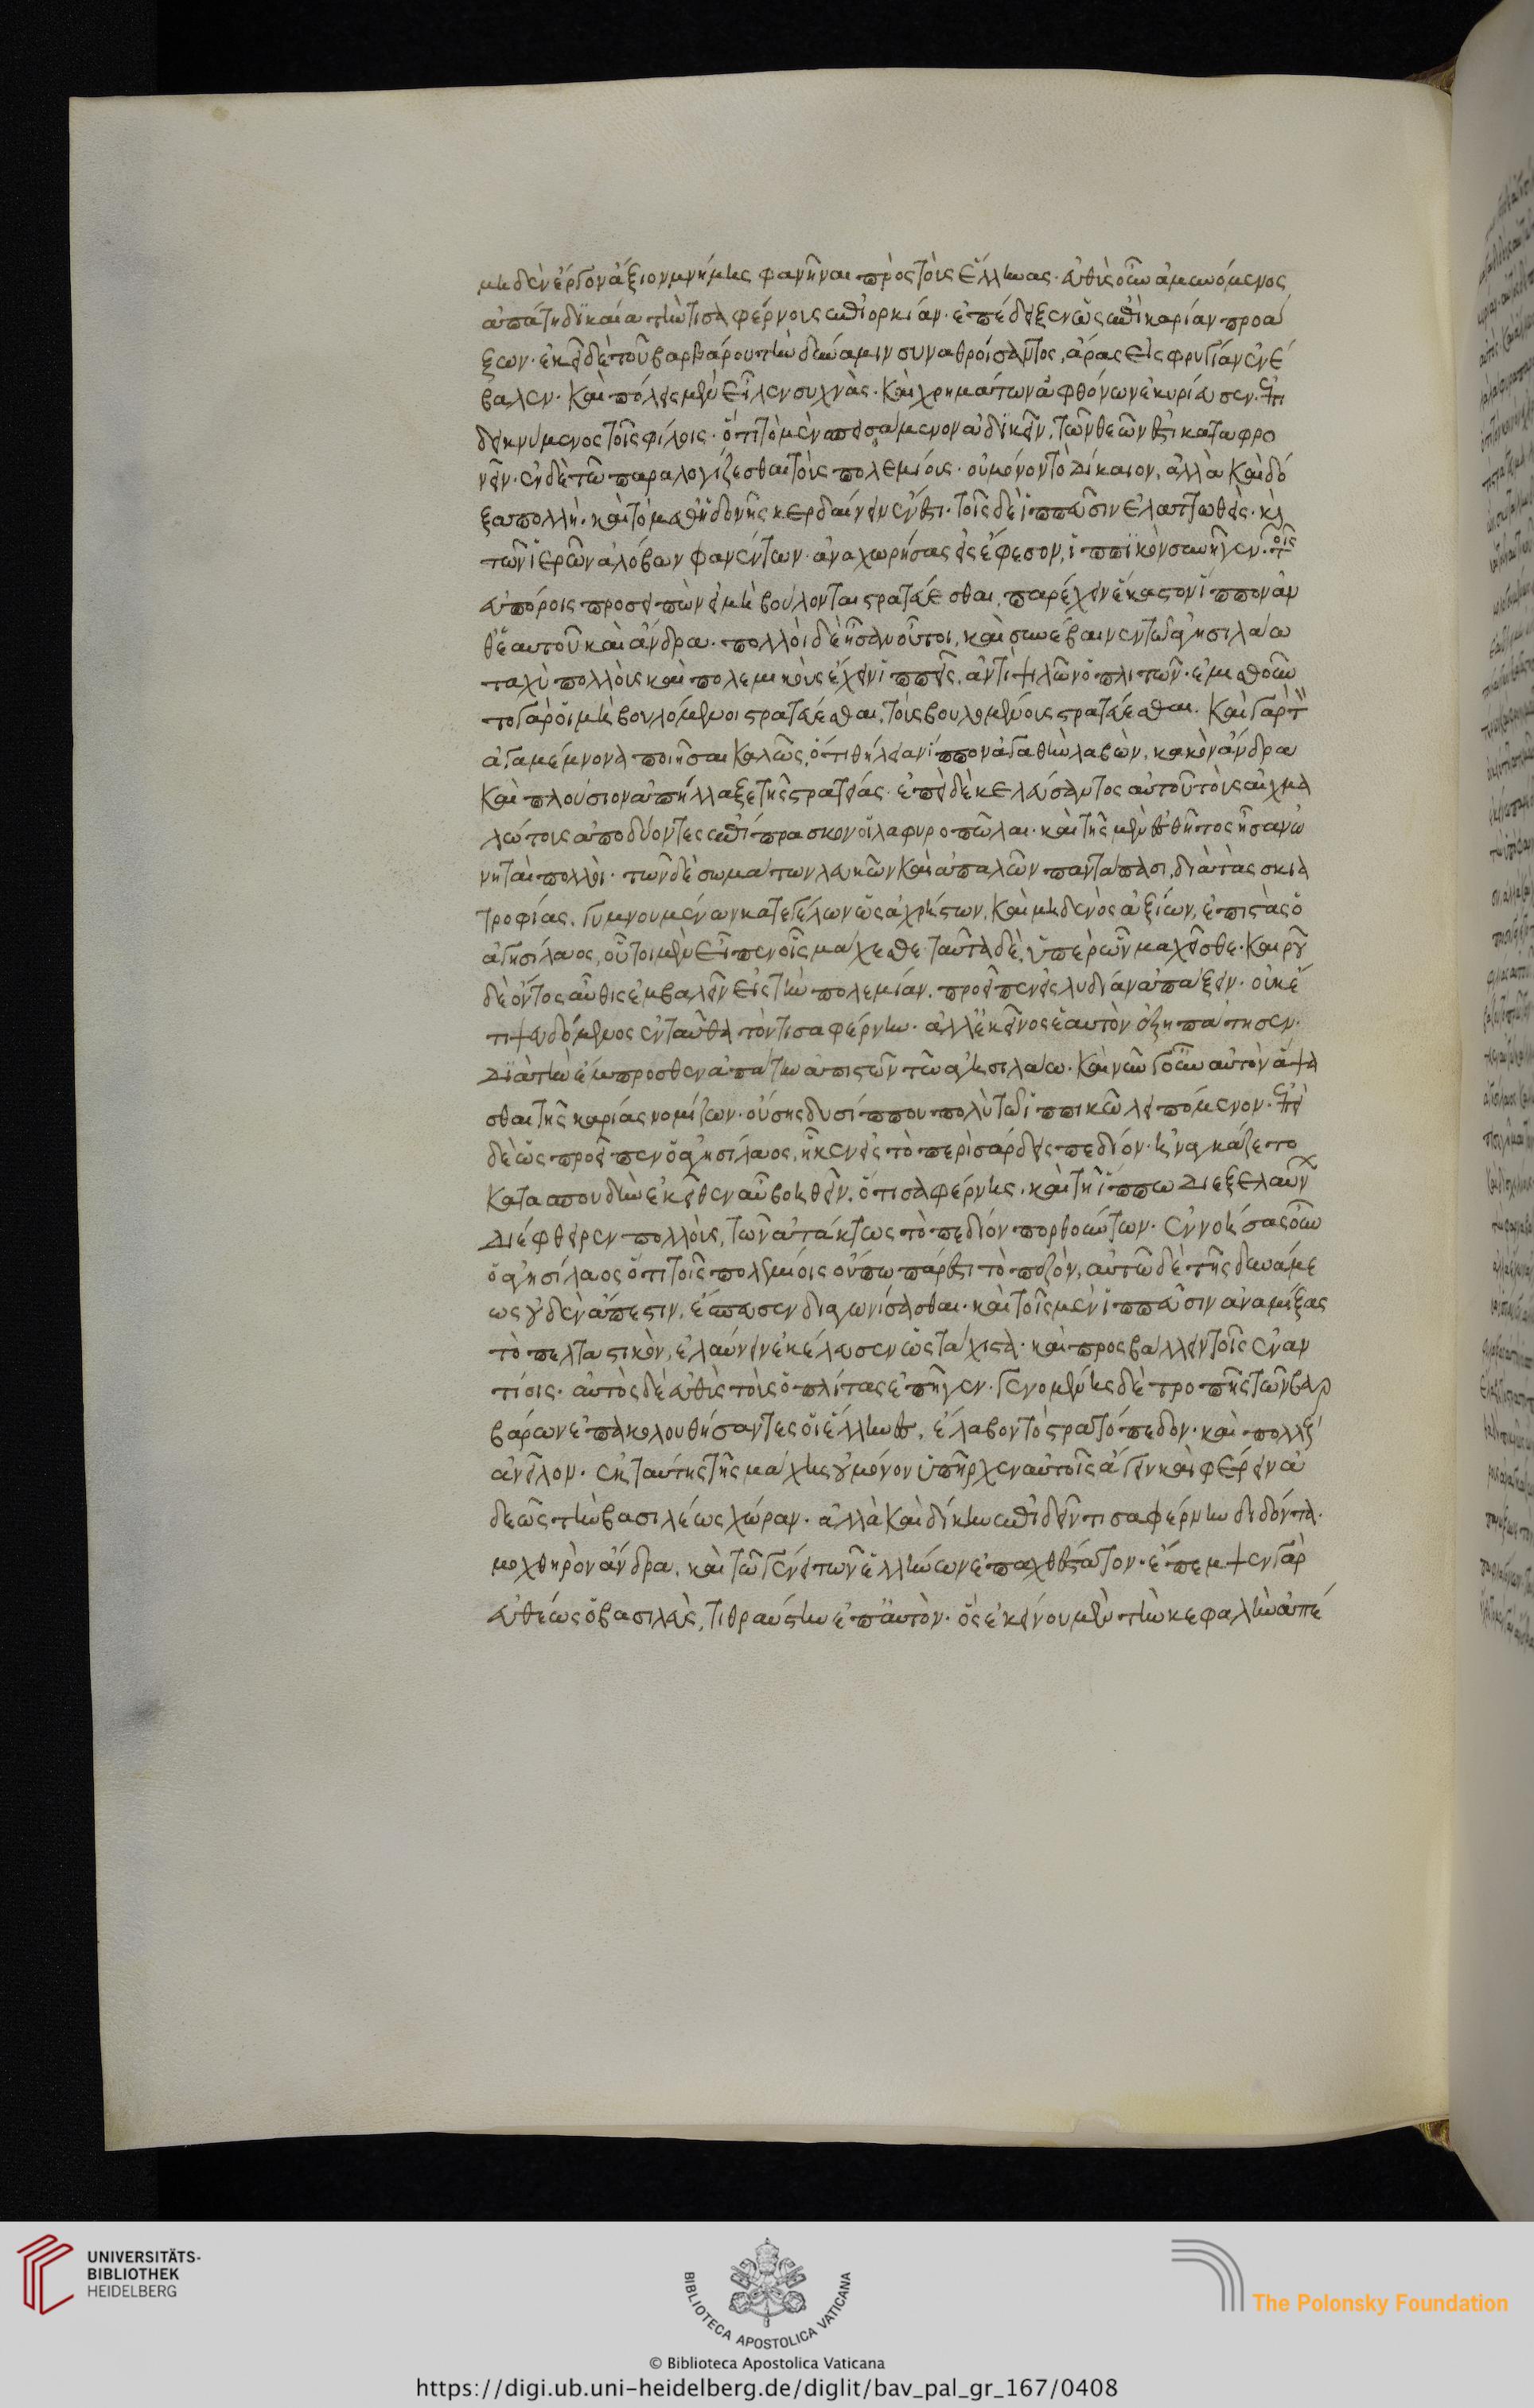 μηδὲν ἔργον ἄξιον μνήμης φανῆναι πρὸς τοὺς ἕλληνας. εὐθὺς οὖν ἀμυνόμενος
ἀπάτη δικαία τὴν τισαφέρνους ἐπιορκίαν. ἐπέδειξεν ὡς ἐπὶ καρίαν προά
ξων. ἐκεῖ δὲ τοῦ βαρβάρου τὴν δύναμιν συναθροίσαντος, ἄρας εἰς φρυγίαν ἐνέ
βαλεν. καὶ πόλεις μὲν εἷλεν συχνὰς. καὶ χρημάτων ἀφθόνων ἐκυρίευσεν. ἐπι
δεικνύμενος τοῖς φίλοις. ὅτι τὸ μὲν σπεισάμενον ἀδικεῖν, τῶν θεῶν ἐστι καταφρο
νεῖν. ἐν δὲ τῶ παραλογίζεσθαι τοὺς πολεμίους. οὐ μόνον τὸ δίκαιον, ἀλλὰ καὶ δό
ξα πολλὴ. καὶ τὸ μεθ ἡδονῆς κερδαίνειν ἔνεστι. τοῖς δὲ ἱππεῦσιν ἐλαττωθεὶς. καὶ
τῶν ἱερῶν ἀλόβων φανέντων. ἀναχωρήσας εἰς ἔφεσον, ἱππικὸν συνῆγεν. τοῖς
εὐπόροις προσειπὼν εἰ μὴ βούλονται στρατεύεσθαι, παρέχειν ἕκαστον ἵππον ἀν
θ ἑαυτοῦ καὶ ἄνδρα. πολλοὶ δὲ ἦσαν οὗτοι, καὶ συνέβαινεν τῶ ἀγησιλάω
ταχὺ πολλοὺς καὶ πολεμικοὺς ἔχειν ἱππεῖς, ἀντὶ ψιλῶν ὁπλιτῶν. ἐμισθοῦν
το γὰρ οἱ μὴ βουλόμενοι στρατεύεσθαι, τοὺς βουλομένους στρατεύεσθαι. καὶ γὰρ τ
ἀγαμέμνονα ποιῆσαι καλῶς, ὅτι θήλειαν ἵππον ἀγαθὴν λαβὼν, κακὸν ἄνδρα
καὶ πλούσιον ἀπήλλαξε τῆς στρατείας. ἐπεὶ δὲ κελεύσαντος αὐτοῦ τοὺς αἰχμα
λώτους ἀποδύοντες ἐπίπρασκον οἱ λαφυροπῶλαι. καὶ τῆς μὲν ἐσθῆτος ἦσαν ὠ
νηταὶ πολλοὶ. τῶν δὲ σωμάτων λευκῶν καὶ ἁπαλῶν παντάπασι, διὰ τὰς σκια
τροφίας, γυμνουμένων κατεγέλων ὡς ἀχρήστων, καὶ μηδενὸς ἀξίων, ἐπιστὰς ὁ
ἀγησίλαος, οὗτοι μὲν εἶπεν οἷς μάχεσθε ταῦτα δὲ, ὑπὲρ ὧν μάχεσθε. καιροῦ
δὲ ὄντος αὖθις ἐμβαλεῖν εἰς τὴν πολεμίαν. προεῖπεν εἰς λυδίαν ἀπάξειν. οὐκ έ
τι ψευδόμενος ἐνταῦθα τὸν τισαφέρνην. ἀλλ ἐκεῖνος ἑαυτὸν ἐξηπάτησεν.
διὰ τὴν ἔμπροσθεν ἀπάτην ἀπιστῶν τῶ ἀγησιλάω. καὶ νῦν γοῦν αὐτὸν ἅψα
σθαι τῆς καρίας νομίζων. οὔσης δυσίππου πολὺ τῶ ἱππικῶ λειπόμενον. ἐπεὶ
δὲ ὡς προεῖπεν ὁ ἀγησίλαος, ἧκεν εἰς τὸ περὶ σάρδεις πεδίον. ἠναγκάζετο
κατα σπουδὴν ἐκεῖθεν αὖ βοηθεῖν. ὁ τισαφέρνης. καὶ τῆ ἵππω διεξελαύν
διέφθειρεν πολλοὺς, τῶν ἀτάκτως τὸ πεδίον πορθούντων. ἐννοήσας οὖν
ὁ ἀγησίλαος ὅτι τοῖς πολεμίοις οὔπω πάρεστι τὸ πεζὸν, αὐτῶ δὲ τῆς δυνάμε
ως οὐδὲν ἄπεστιν, ἔσπευσεν διαγωνίσασθαι. καὶ τοῖς μὲν ἱππεῦσιν ἀναμίξας
τὸ πελταστικὸν, ἐλαύνειν ἐκέλευσεν ὡς τάχιστα. καὶ προσβάλλειν τοῖς ἐναν
τίοις. αὐτὸς δὲ εὐθὺς τοὺς ὁπλίτας ἐπῆγεν. γενομένης δὲ τροπῆς τῶν βαρ
βάρων ἐπακολουθήσαντες οἱ ἕλληνες, ἔλαβον τὸ στρατόπεδον. καὶ πολλοὺς
ἀνεῖλον. ἐκ ταύτης τῆς μάχης οὐ μόνον ὑπῆρχεν αὐτοῖς ἄγειν καὶ φέρειν ἀ
δεῶς τὴν βασιλέως χώραν. ἀλλὰ καὶ δίκην ἐπιδεῖν τισαφέρνην διδόντα.
μοχθηρὸν ἄνδρα. καὶ τῶ γένει τῶν ἑλλήνων ἐπαχθέστατον. ἔπεμψεν γὰρ
εὐθέως ὁ βασιλεὺς, τιθραύστην ἐπ αὐτὸν. ὃς ἐκείνου μὲν τὴν κεφαλὴν ἀπέ
UNIVERSITÄTS-
BIBLIOTHEK
HEIDELBERG
BIBLIOTECA APOSTOLICA VATICANA
The Polonsky Foundation
© Biblioteca Apostolica Vaticana
https://digi.ub.uni-heidelberg.de/diglit/bav_pal_gr_167/0408